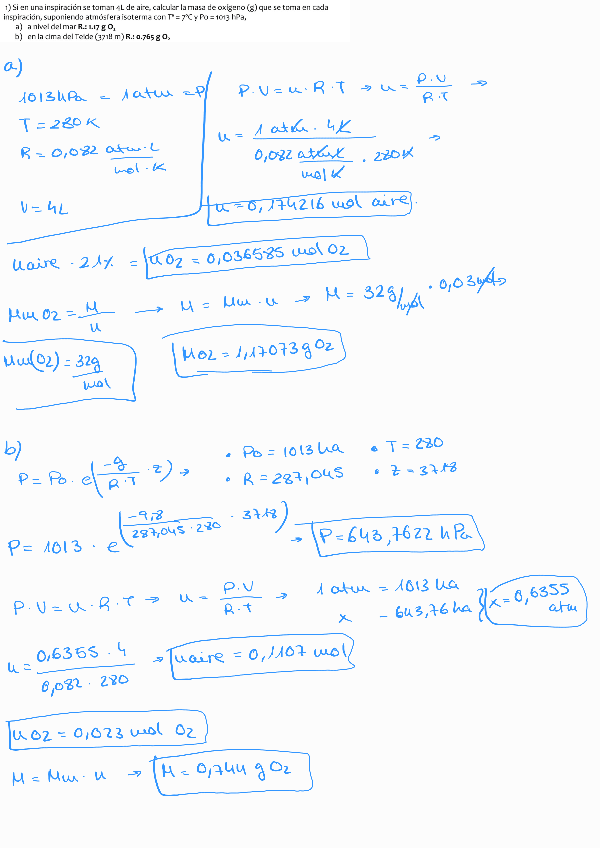 1) Si en una inspiración se toman 4L de aire, calcular la masa de oxígeno (g) que se toma en cada
inspiración, suponiendo atmósfera isoterma con Tª = 7°C y P0 = 1013 hPa,
a) a nivel del mar R.: 1.17 g O₂
b) en la cima del Teide (3718 m) R.: 0.765 g O₂
a)
1013 hPa = 1 atm = P
T = 280 K
R = 0,082 atm·L / mol·K
V = 4L
P·V = n·R·T → n = P·V / R·T →
n = 1 atm · 4L / 0,082 atm·L / mol K · 280K →
n = 0,174216 mol aire.
n aire · 21% = n O2 = 0,036585 mol O2
Mm O2 = M / n → M = Mm · n → M = 32g/mol · 0,03 mol
Mm(O2) = 32g / mol
M O2 = 1,17073 g O2
b)
P = Po · e(-g / R·T · z) →
• Po = 1013 ha • T = 280
• R = 287,045 • z = 3718
P = 1013 · e(-9,8 / 287,045 · 280 · 3718) → P = 643,7622 hPa
P·V = n·R·T → n = P·V / R·T → 1 atm = 1013 ha
x - 643,76 ha } x = 0,6355 atm
n = 0,6355 · 4 / 0,082 · 280 → n aire = 0,1107 mol
n O2 = 0,023 mol O2
M = Mm · n → M = 0,744 g O2